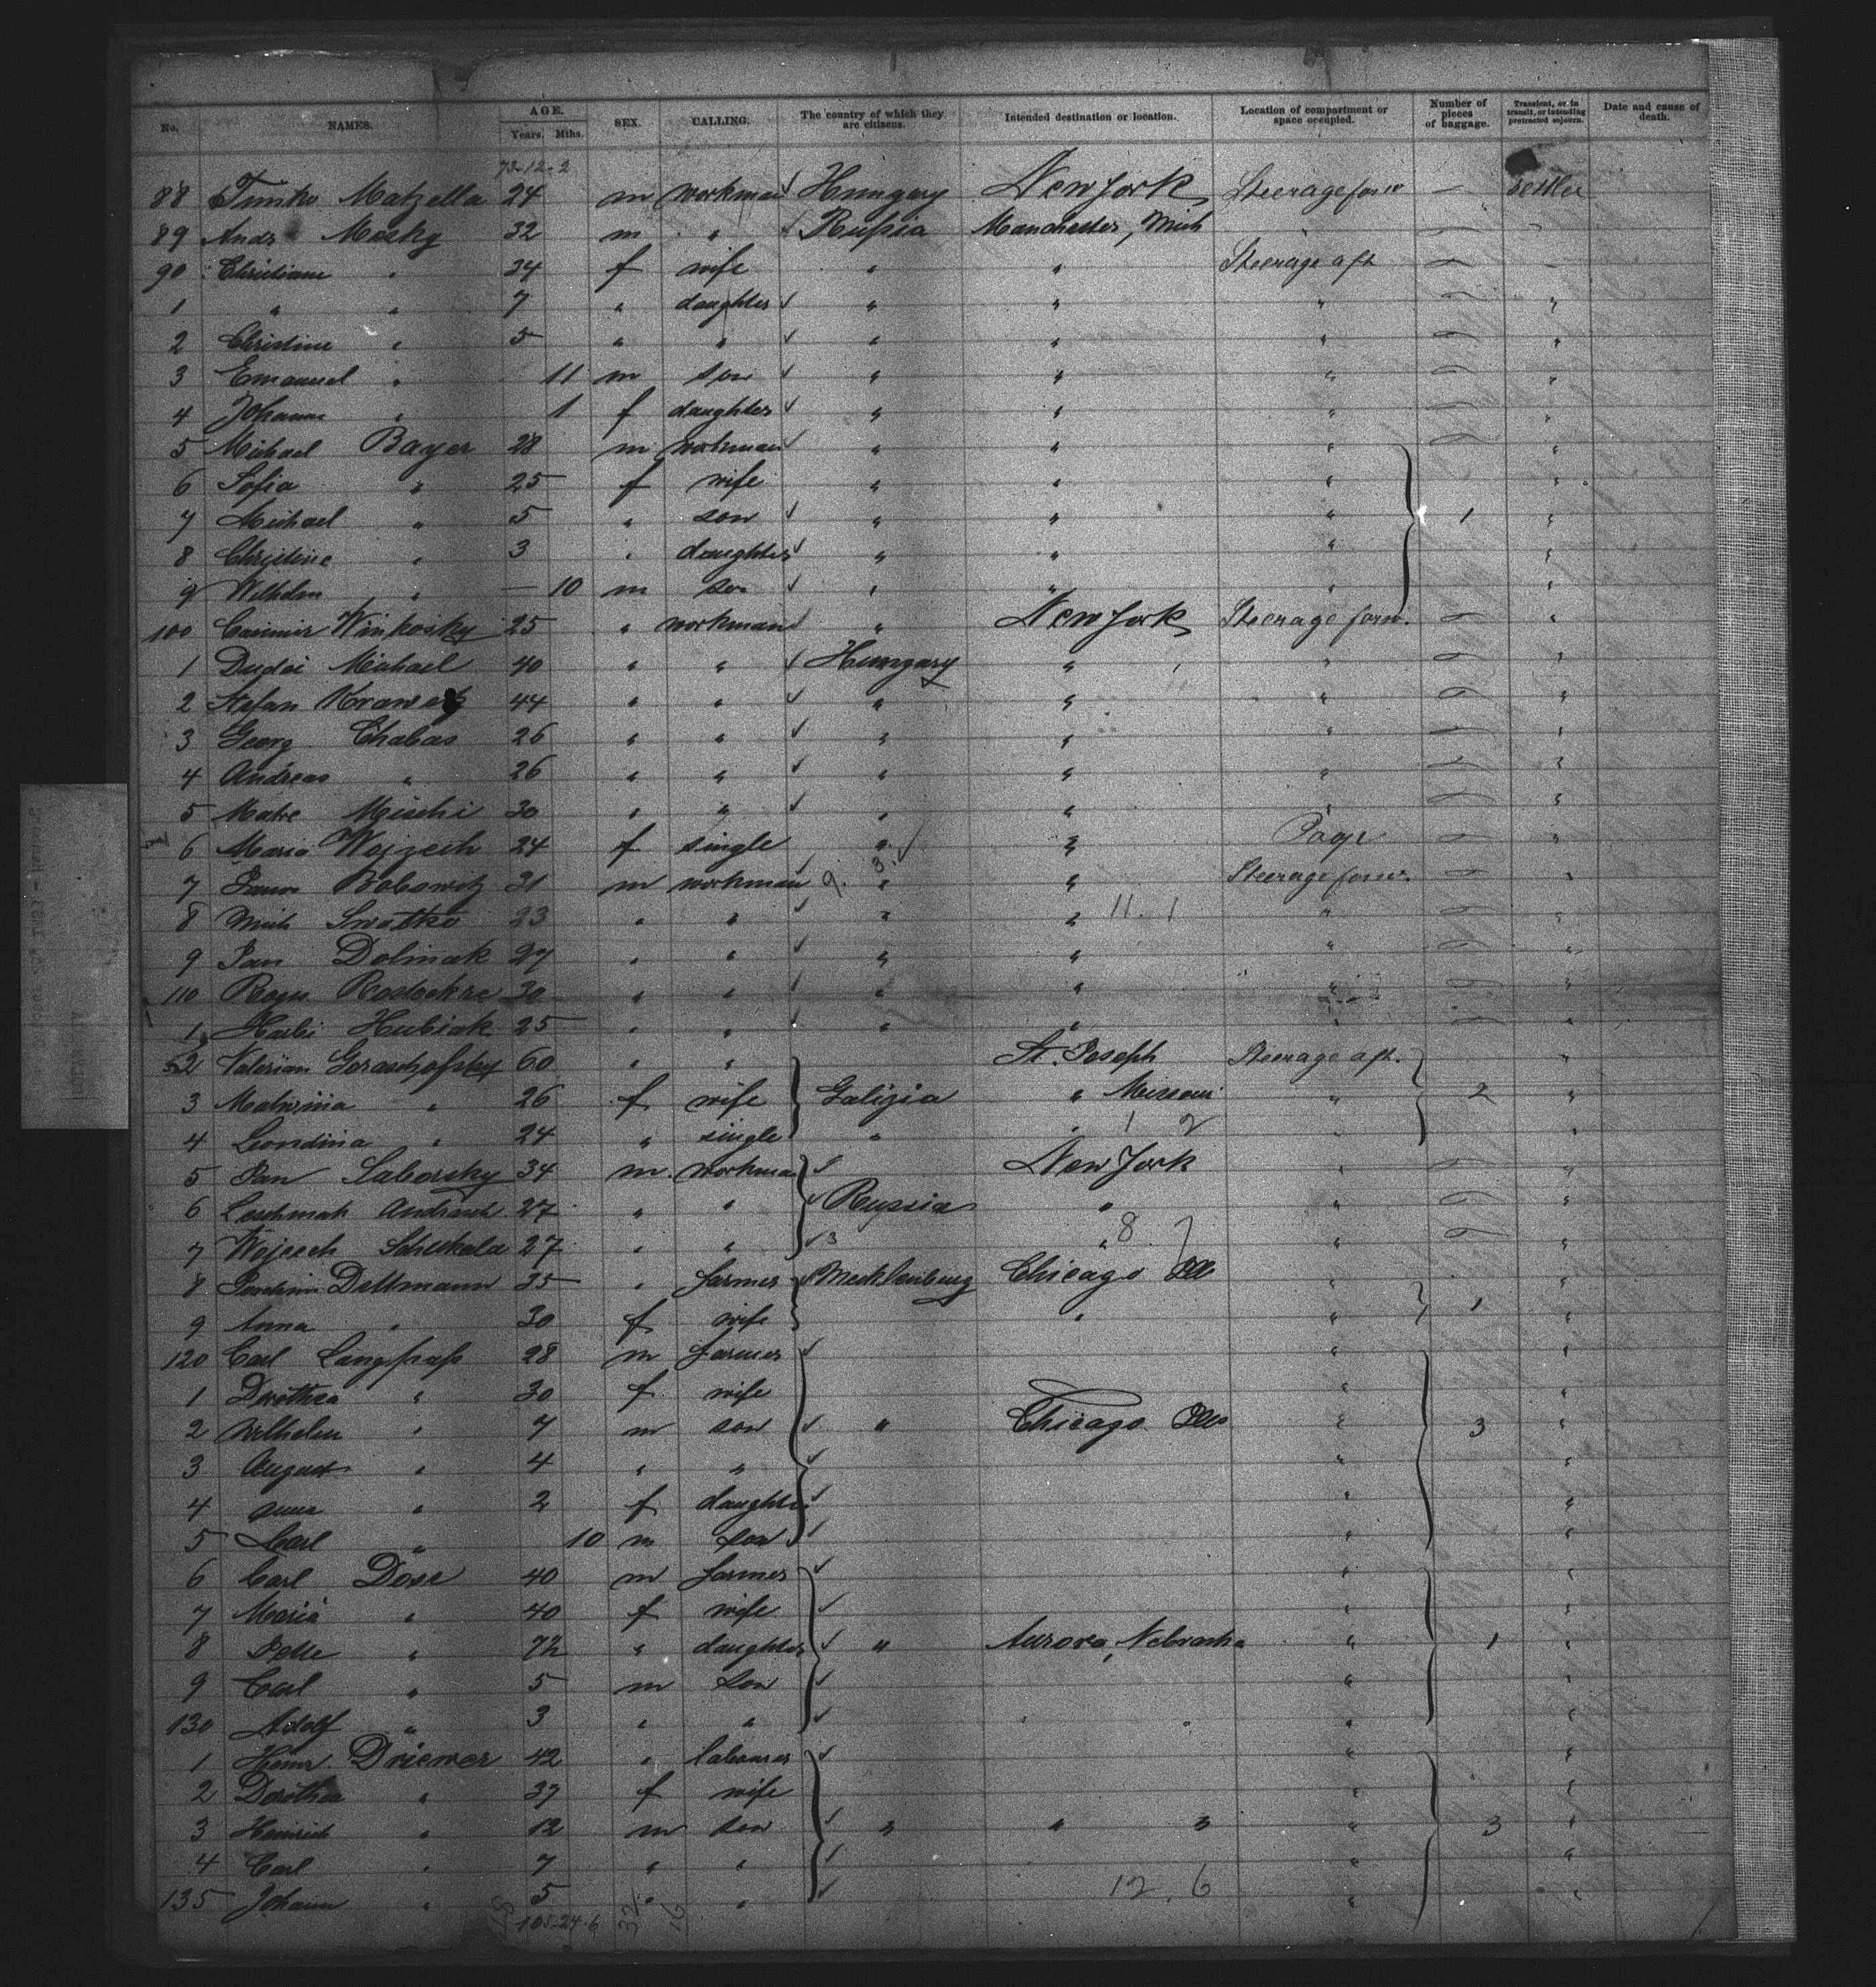 No. NAMES. AGE. Years. Mths. SEX. CALLING. The country of which they are citizens. Intended destination or location. Location of compartment or space occupied. Number of pieces of baggage. Transient, or in transit, or intending protracted sojourn. Date and cause of death.
73-12-2
88 Timko Matzella 24 m workman Hungary New York Steerage forw — settler
89 Andr Mosky 32 m " Russia Manchester, Mich " —
90 Christiane " 34 f wife " " Steerage aft —
1 " " 7 " daughter " " " — "
2 Christine " 5 " " " " " — "
3 Emanuel " 11 m son " " " — "
4 Johanne " 1 f daughter " " " — "
5 Michael Bayer 28 m workman " " " — "
6 Sofia " 25 f wife " " " "
7 Michael " 5 " son " " " 1 "
8 Christine " 3 " daughter " " " "
9 Wilhelm " — 10 m son " " " "
100 Casimir Winkosky 25 " workman " New York Steerage forw. — "
1 Dudai Michael 40 " " Hungary " " — "
2 Stefan 44 " " " " " — "
3 Georg Chabas 26 " " " " " — "
4 Andreas " 26 " " " " " — "
5 Matre Mischi 30 " " " " " — "
6 Maria Wojzech 24 f single " " — "
7 Bobowitz 31 m workman 9. 3. " " Steerage forw. — "
8 Mich Swatko 23 " " " " 11. 1 " — "
9 Jan Dolinak 27 " " " " " — "
110 30 " " " " " — "
1 Hubiak 25 " " " " " — "
2 Valerian 60 " " St. Joseph Steerage aft. "
3 " 26 f wife Galizia " Missouri " 2 "
4 Leondina " 24 " single " " 1 2 " "
5 Jan Saborsky 34 m. workman New York " — "
6 Leschmak Andrasch 27 " " Russia " " — "
7 Wojcech Schukala 27 " " 3 " 8 7 " — "
8 Joachim Dettmann 35 " farmer Mecklenburg Chicago Ill " "
9 Anna " 30 f wife " " 1 "
120 Carl Langpap 28 m farmer " "
1 Dorothea " 30 f wife " "
2 Wilhelm " 7 m son " Chicago Ills " 3 "
3 August " 4 " " " "
4 Anna " 2 f daughter " "
5 Carl " 10 m son " "
6 Carl Dose 40 m farmer " "
7 Maria " 40 f wife " "
8 " " daughter " Aurora, Nebraska " 1 "
9 Carl " 5 m son " "
130 Adolf " 3 " " " "
1 Heinr. Driewer 42 " labourer " "
2 Dorothea " 37 f wife " "
3 Heinrich " 12 m son " " " " 3 "
4 Carl " 7 " " " "
135 Johann " 5 " " 12. 6 " "
105-24-6 32 16